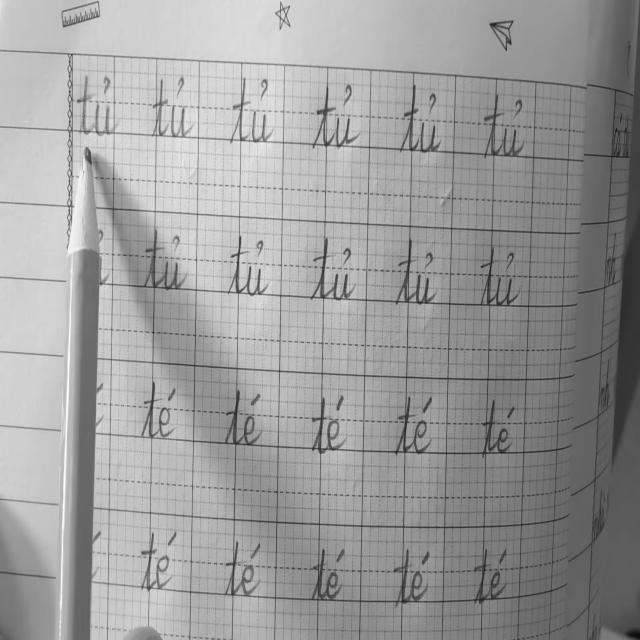 tủ tủ tủ tủ tủ tủ
tủ tủ tủ tủ tủ
té té té té té
té té té té té